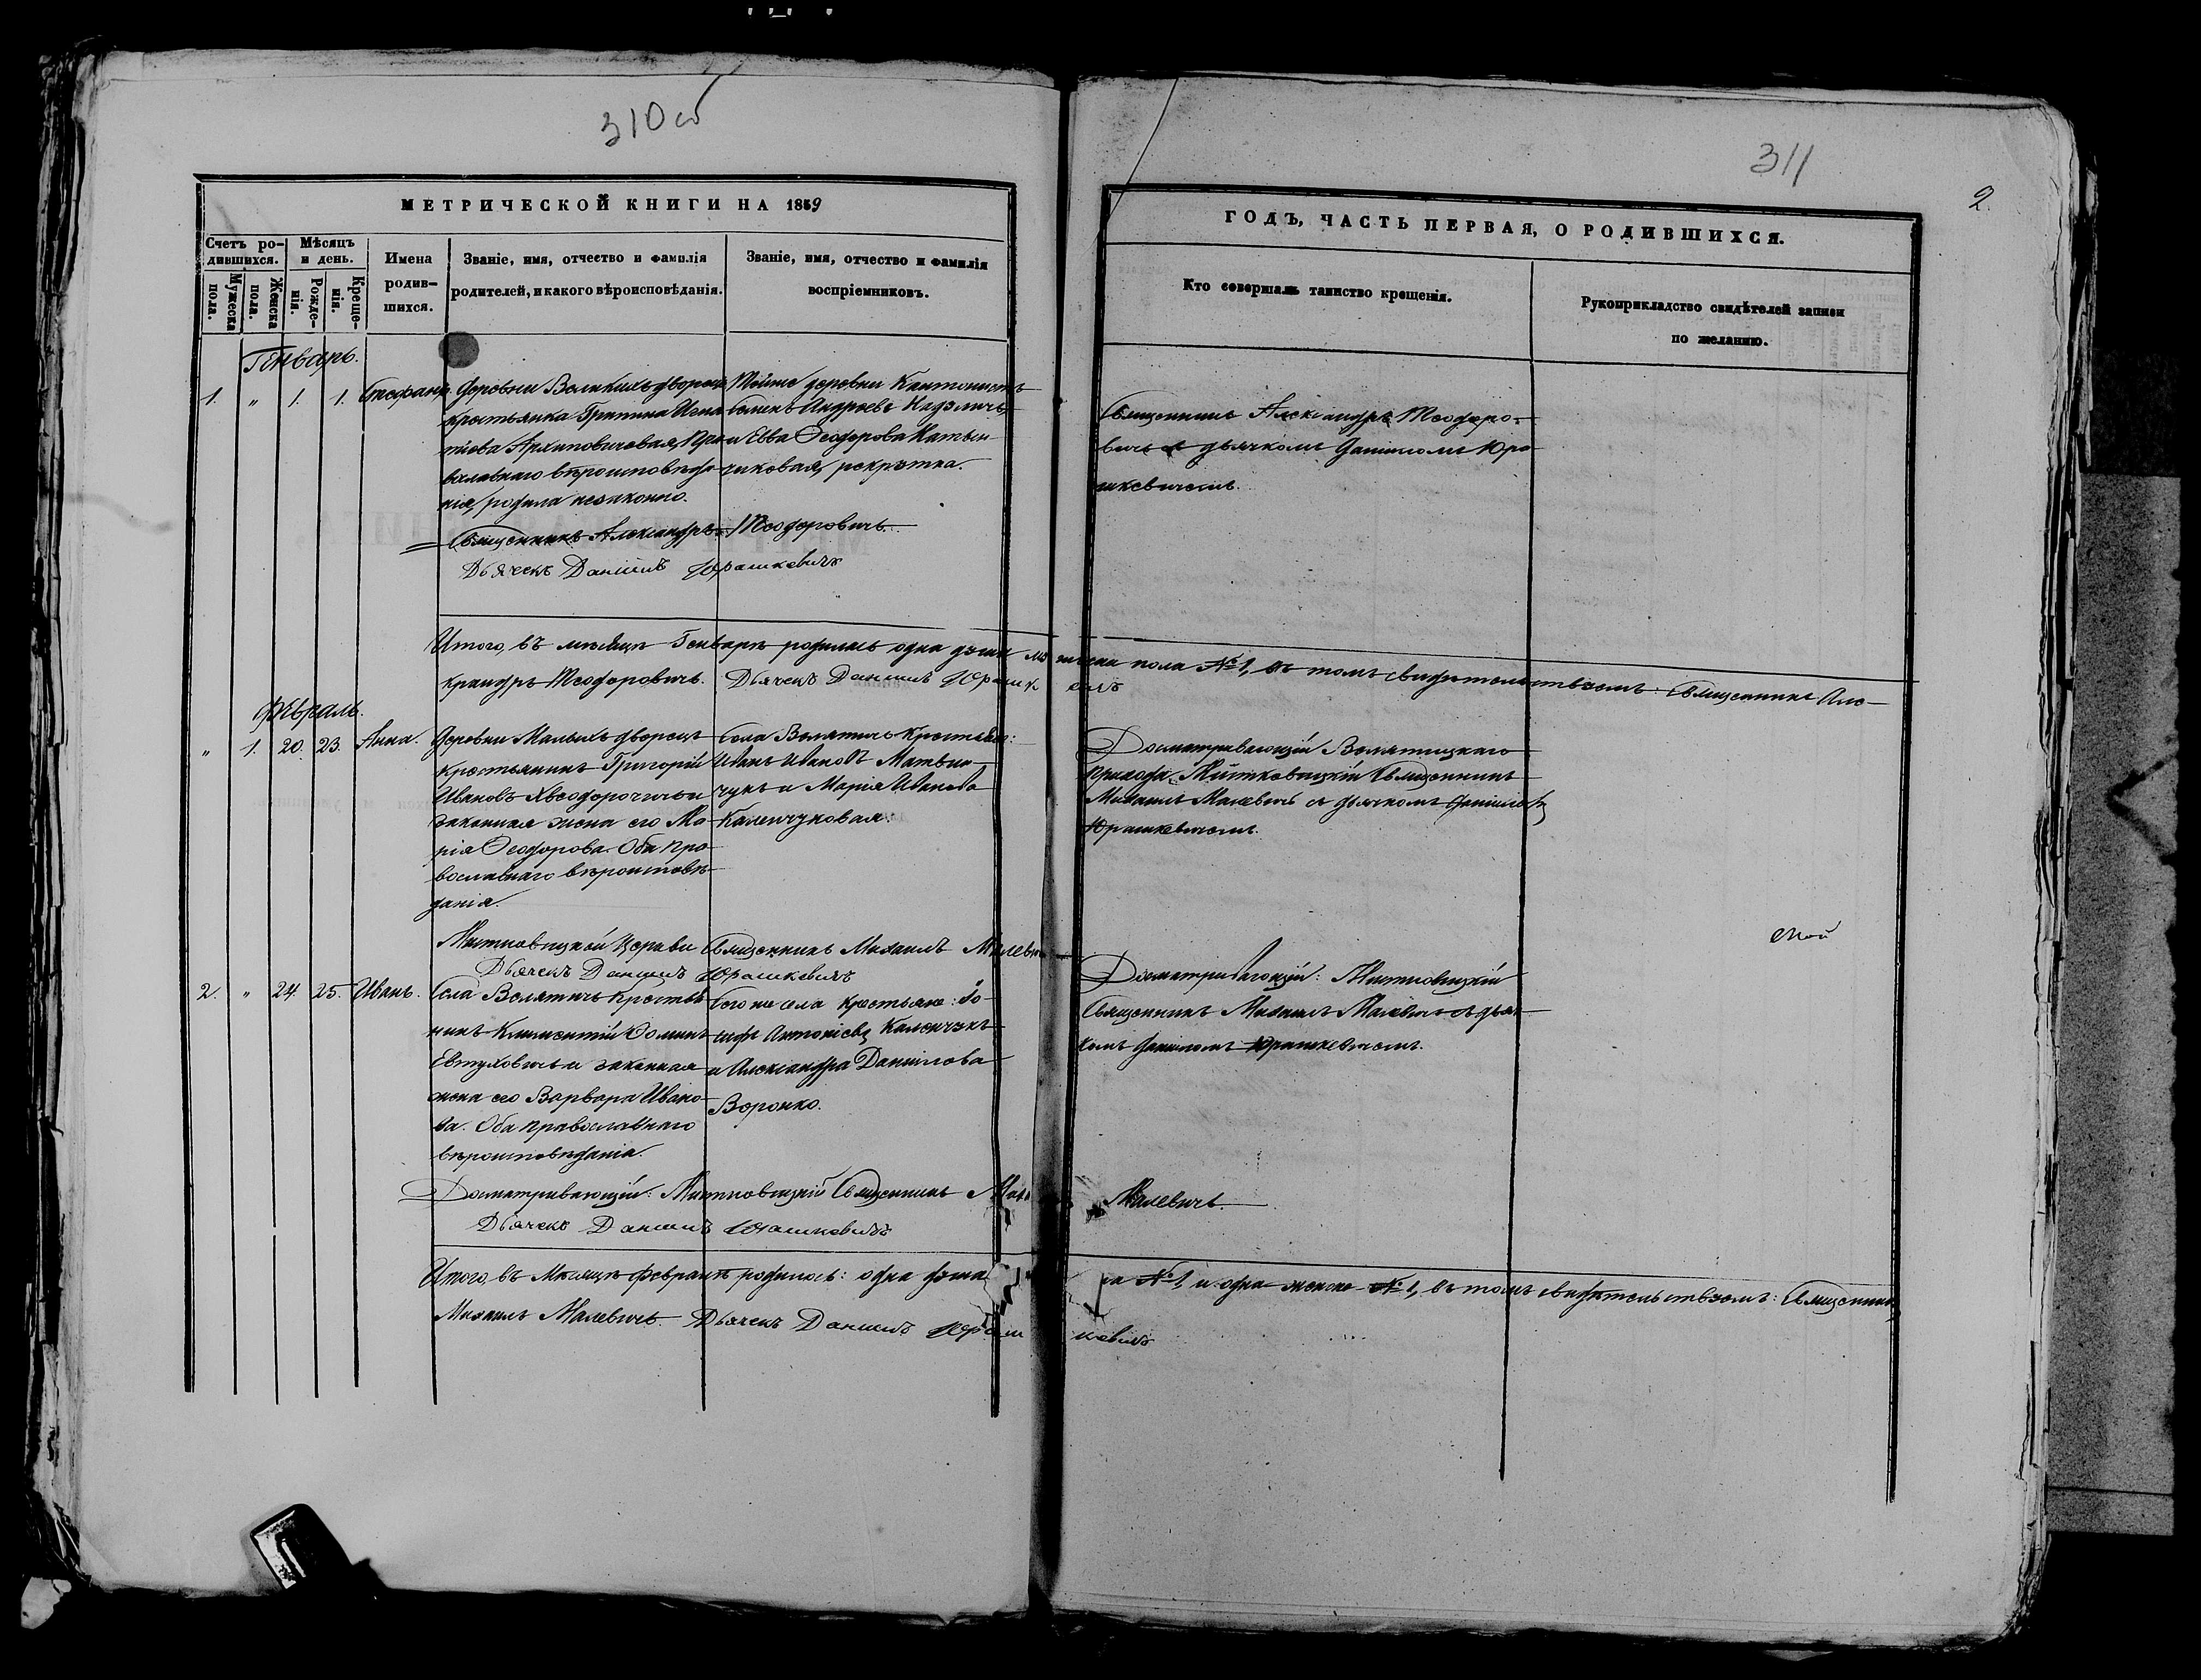 310 об
311
2.
МЕТРИЧЕСКОЙ КНИГИ НА 1859
ГОДЪ, ЧАСТЬ ПЕРВАЯ, О РОДИВШИХСЯ.
Счетъ ро-
дившихся.
Мужеска
пола.
Женска
пола.
Мѣсяцъ
и день.
Рожде-
нія.
Креще-
нія.
Имена
родив-
шихся.
Званіе, имя, отчество и фамилія
родителей, и какого вѣроисповѣданія.
Званіе, имя, отчество и фамилія
воспріемниковъ.
Кто совершалъ таинство крещенія.
Рукоприкладство свидѣтелей записи
по желанію.
Генварь.
1. " 1. 1. Стефанъ.
Деревни Великихъ дворецъ
крестьянка Грипина Игна
тіева Архиповичевая, Пра
вославнаго вѣроисповѣда
нія, родила незаконно.
Тойже деревни Кантонистъ
Семенъ Андреевъ
и Евва Ѳеодорова Матвѣй-
чиковая, рекрутка.
Священникъ Александръ Теодоро-
вичъ съ дьячкомъ Даніиломъ Юра
шкевичемъ.
Священникъ Александръ Теодоровичъ.
Дьячекъ Даніилъ Юрашкевичъ
Итого, въ мѣсяцѣ Генварѣ родилась одна душа мужеска пола №1, въ томъ свидѣтельствуемъ: Священникъ Але-
ксандръ Теодоровичъ. Дьячекъ Даніилъ Юрашкевичъ
Февраль.
" 1. 20. 23. Анна.
Деревни Малыхъ дворецъ
Крестьянинъ Григорій
Ивановъ и
законная жена его Ма-
рія Ѳеодорова. Оба пра-
вославнаго вѣроисповѣ-
данія.
Села Велятичъ Крестьяне:
Иванъ Ивановъ Матвѣй-
чукъ и Марія Иванова
Каленчуковая.
Досматривающій Велятицкаго
прихода, Митковицкій Священникъ
Михаилъ Малевичъ съ дьячкомъ Даніиломъ
Юрашкевичемъ.
Митковицкой Церкви Священникъ Михаилъ Малевичъ
Дьячекъ Даніилъ Юрашкевичъ
2. " 24. 25. Иванъ.
Села Велятичъ Крестья
нинъ Климентій Ѳоминъ
Евтуховичъ и законная
жена его Варвара Ивано-
ва. Оба православнаго
вѣроисповѣданія.
Того же села Крестьяне: Іо-
сифъ Антоніевъ Каленчукъ
и Александра Даниилова
Воронко.
Досматривающій: Митковицкій
Священникъ Михаилъ Малевичъ съ дьяч
комъ Даніиломъ Юрашкевичемъ.
Досматривающій: Митковицкій Священникъ Малевичъ.
Дьячекъ Даніилъ Юрашкевичъ
Итого, въ Мѣсяцѣ Февралѣ родилось: одна душа №1, и одна женска №1, въ томъ свидѣтельствуемъ: Священникъ
Михаилъ Малевичъ. Дьячекъ Даніилъ Юрашкевичъ